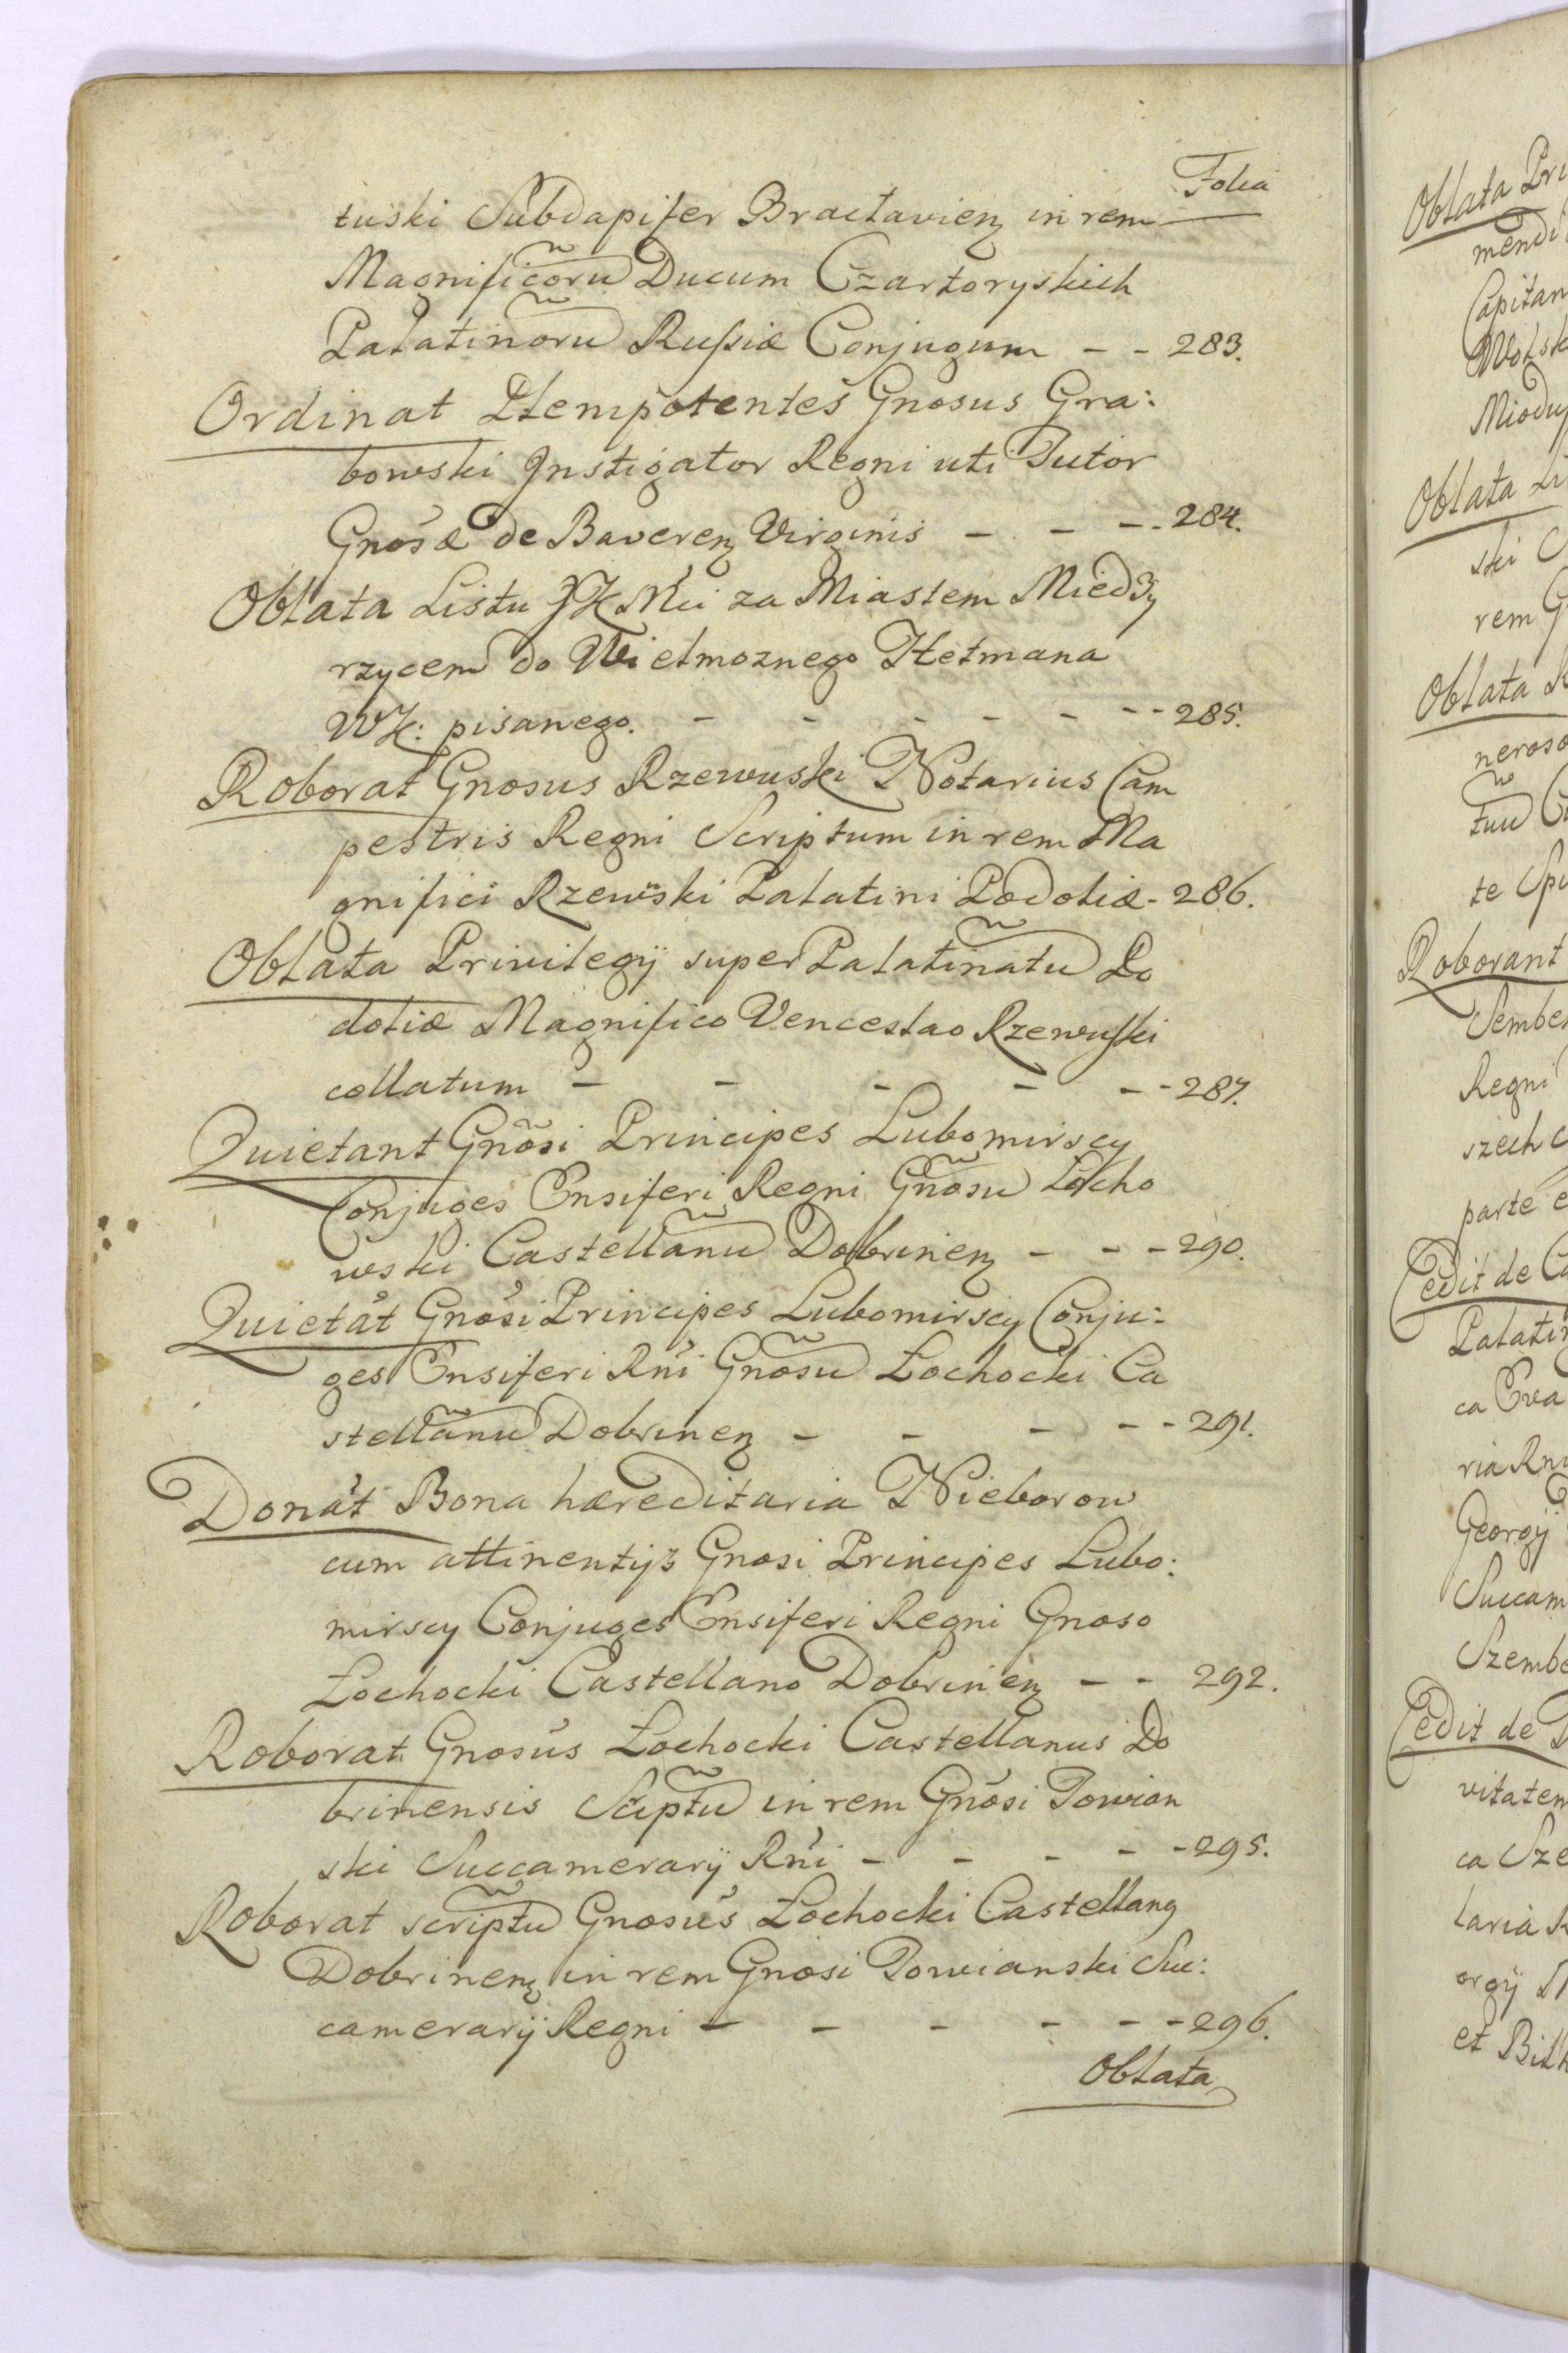 Folia
tuski Subdapifer Bractavienȝ in rem
Magnificorũ Ducum Czartoryskich
Palatinorũ Russiæ Conjugum - - 283.
Ordinat Plenipotentes Gnosus Gra:
bowski Instigator Regni uti Tutor
Gnosæ de Baverenȝ Virginis - - - 284.
Oblata Listu JK Mci za Miastem Miedzy
rzycem do Wielmoznego Hetmana
WK: pisanego. - - - - - - - 285.
Roborat Gnosus Rzewuski Notarius Cam
pestris Regni Scriptum in rem Ma
gnifici Rzewuski Palatini Podoliæ - 286.
Oblata Privilegij super Palatinatũ Po
doliæ Magnifico Venceslao Rzewuski
collatum - - - - - - 287.
Quietant Gnõsi Principes Lubomirscy
Conjuges Ensiferi Regni Gnosũ Łocho
wski Castellanũ Dobrinenȝ - - - 290.
Quietat Gnosi Principes Lubomirscy Conju:
ges Ensiferi Rni Gnosũ Łochocki Ca
stellanũ Dobrinenȝ - - - - - 291.
Donat Bona hæreditaria Nieborow
cum attinentijs Gnosi Principes Lubo:
mirscy Conjuges Ensiferi Regni Gnoso
Łochocki Castellano Dobrinenȝ - - 292.
Roborat Gnosus Łochocki Castellanus Do
brinensis Scriptũ in rem Gnosi Powian
ski Succamerarij Rni - - - - - 295.
Roborat scriptũ Gnosus Łochocki Castellanȝ
Dobrinenȝ in rem Gnosi Powianski Suc:
camerarij Regni - - - - - - 296.
Oblata
Oblata Pri
mendi
Capitan
Miodu
Oblata Li
ski
rem G
Oblata
neroso
tuũ
te Spi
Roborant
Sembe
Regni
szech
parte e
Cedit de Ca
Palatin
ca Eva
ria Rni
Georgij
Succam
Szembe
Cedit de
vitatem
ca Sze
laria R
orgij
et Bilk